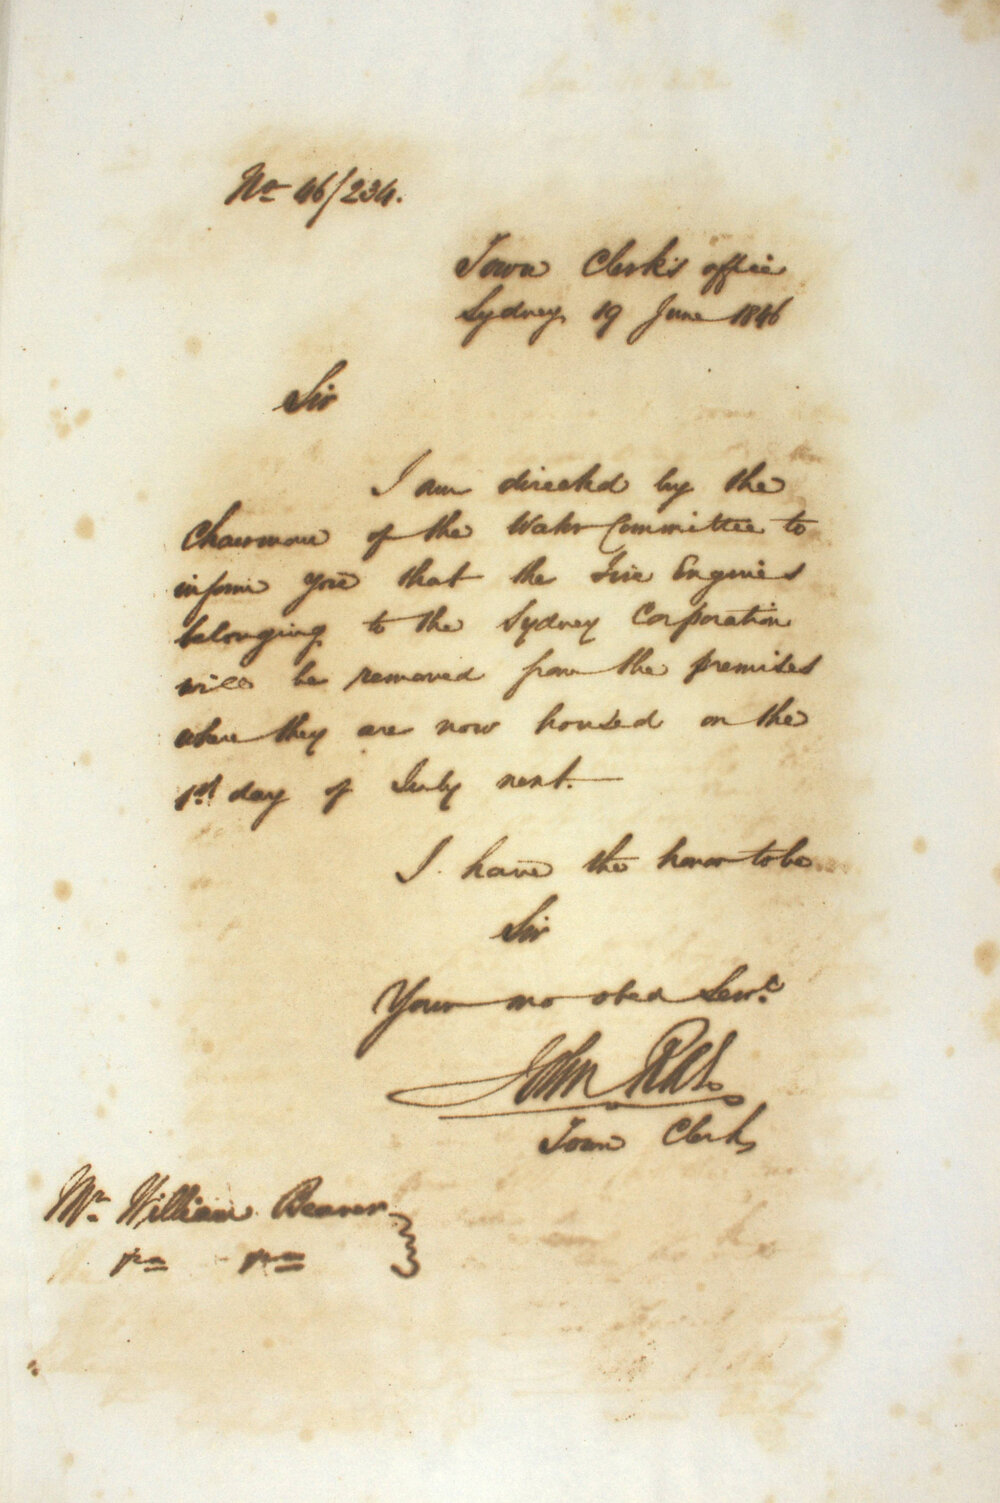 No 46/234.
Town Clerk's office
Sydney 19 June 1846
Sir
I am directed by the
Chairman of the Water Committee to
inform you that the Fire Engines
belonging to the Sydney Corporation
will be removed from the premises
where they are now housed on the
1st day of July next.
I have the honor to be
Sir
Your mo obed Servt
John Rae
Town Clerk
Mr. William Beaver